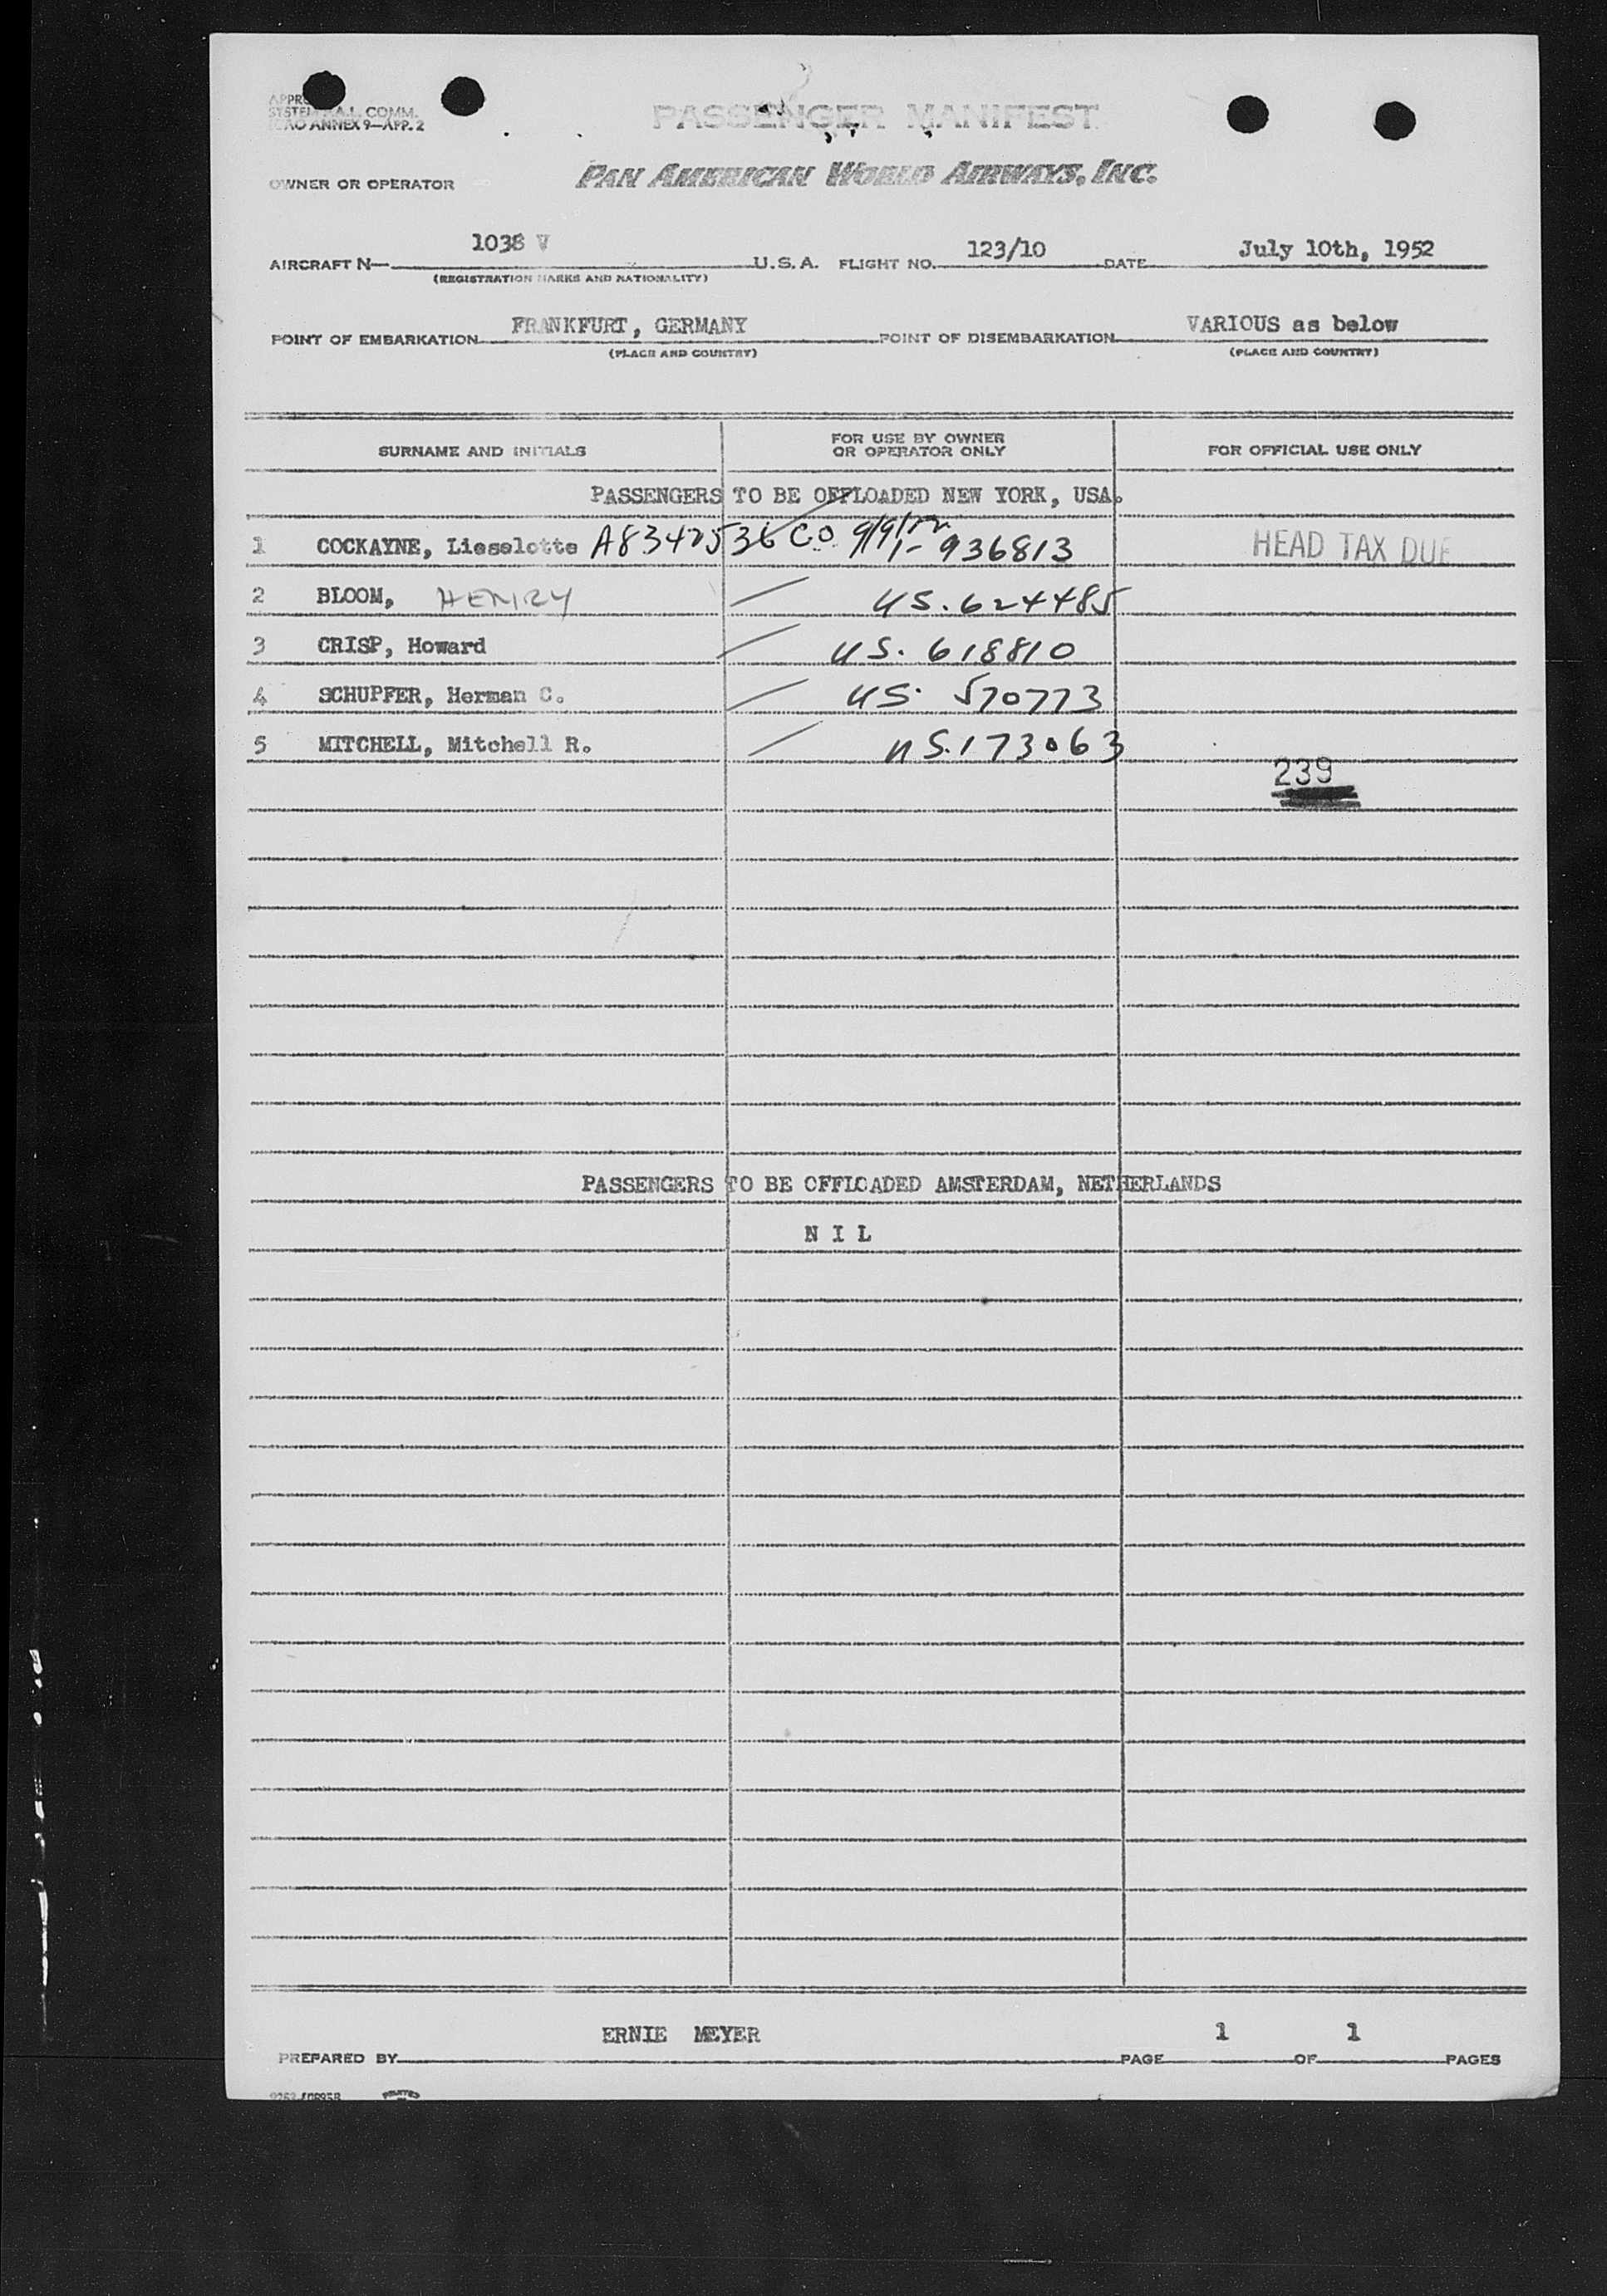 SYSTEM A.I. COMM.
ICAO ANNEX 9—APP. 2
PASSENGER MANIFEST
OWNER OR OPERATOR PAN AMERICAN WORLD AIRWAYS, INC.
AIRCRAFT N— 1038 V U.S.A. FLIGHT NO. 123/10 DATE July 10th, 1952
(REGISTRATION MARKS AND NATIONALITY)
POINT OF EMBARKATION FRANKFURT, GERMANY POINT OF DISEMBARKATION VARIOUS as below
(PLACE AND COUNTRY) (PLACE AND COUNTRY)
SURNAME AND INITIALS FOR USE BY OWNER OR OPERATOR ONLY FOR OFFICIAL USE ONLY
PASSENGERS TO BE OFFLOADED NEW YORK, USA.
1 COCKAYNE, Lieselotte A8342536 C.O. 9/9/52 1-936813 HEAD TAX DUE
2 BLOOM, HENRY US. 624485
3 CRISP, Howard US. 618810
4 SCHUPFER, Herman C. US. 570773
5 MITCHELL, Mitchell R. US. 173063
239
PASSENGERS TO BE OFFLOADED AMSTERDAM, NETHERLANDS
N I L
PREPARED BY ERNIE MEYER PAGE 1 OF 1 PAGES